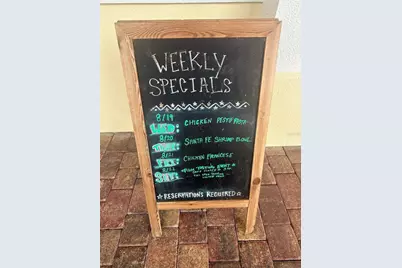 WEEKLY
SPECIALS
8/19
WED: CHICKEN PESTO PASTA
8/20
SANTA FE SHRIMP BOWL
8/21
FRI: CHICKEN FRANCESE
8/22
SAT:
☆ RESERVATIONS REQUIRED ☆